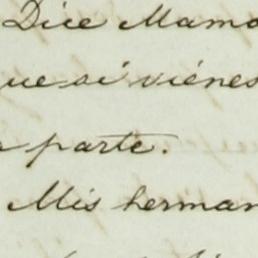 Dice Mama
que si viénes
parte.
Mis herman